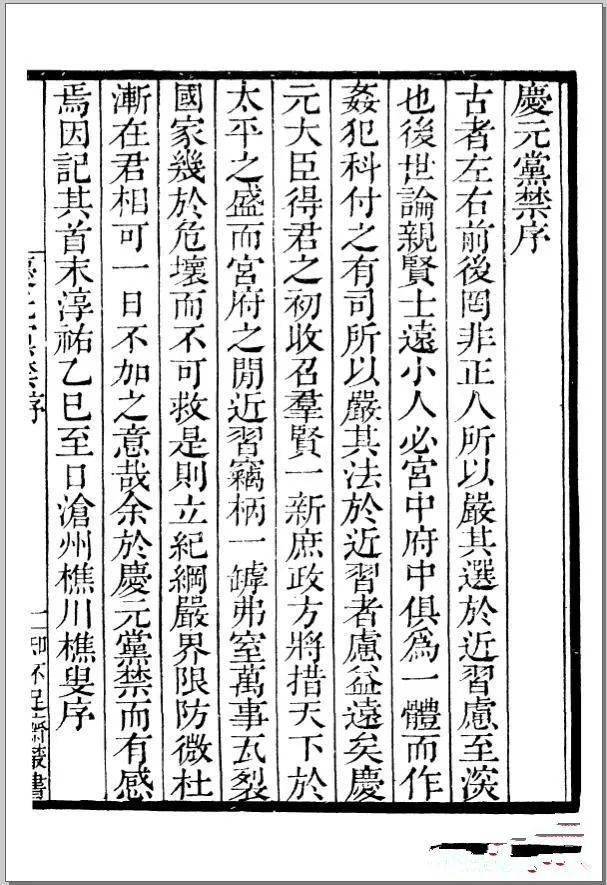 慶元黨禁序
古者左右前後罔非正人所以嚴其選於近習慮至深
也後世論親賢士遠小人必宮中府中俱為一體而作
姦犯科付之有司所以嚴其法於近習者慮益遠矣慶
元大臣得君之初收召羣賢一新庶政方將措天下於
太平之盛而宮府之閒近習竊柄一罅弗窒萬事瓦裂
國家幾於危壞而不可救是則立紀綱嚴界限防微杜
漸在君相可一日不加之意哉余於慶元黨禁而有感
焉因記其首末淳祐乙巳至日滄州樵川樵叟序
慶元黨禁序
一知不足齋叢書